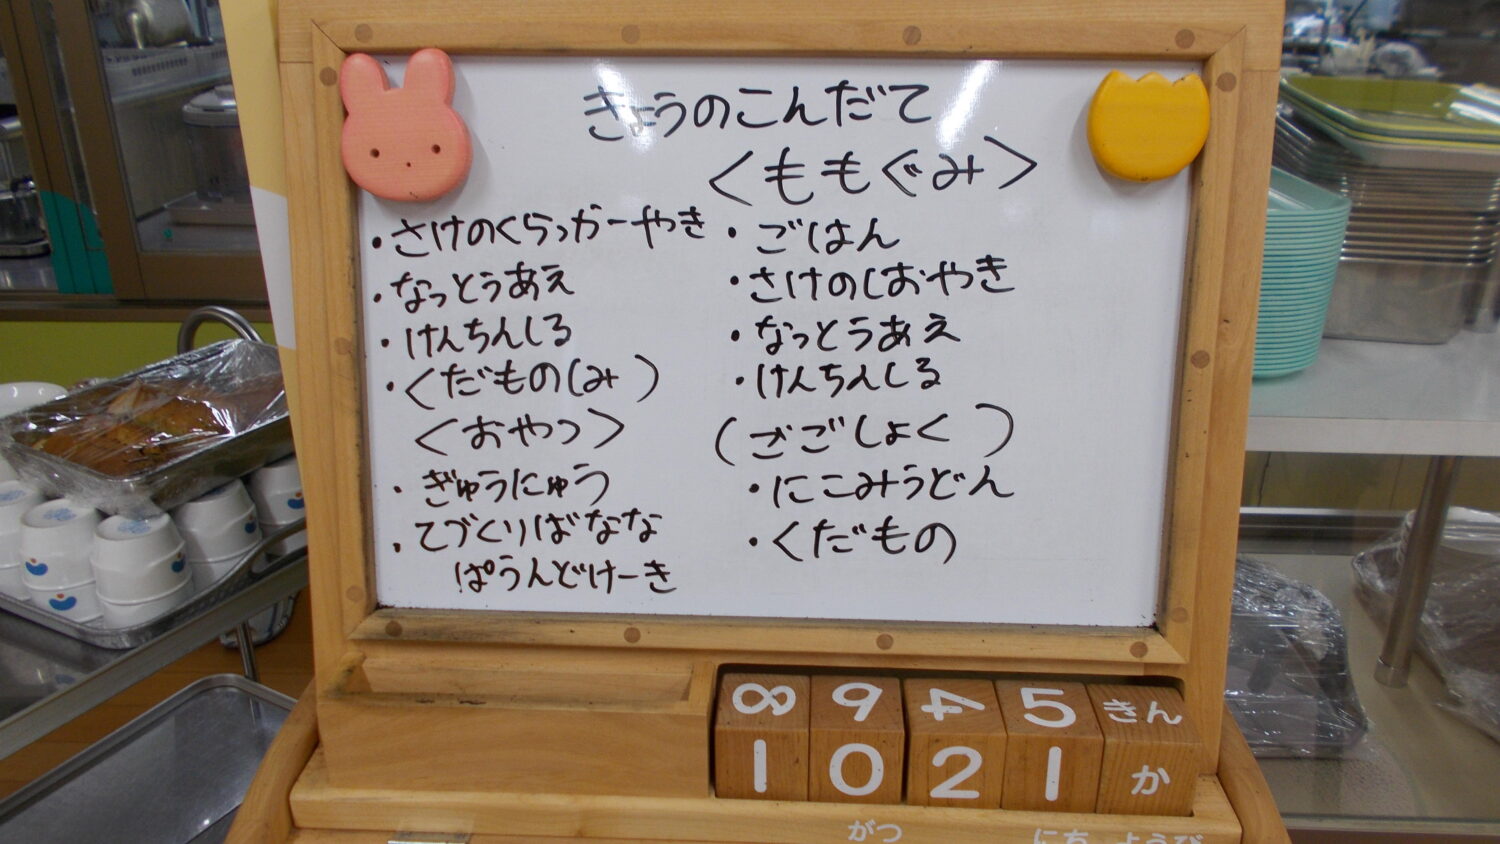 きょうのこんだて
<ももぐみ>
・さけのくらっかーやき
・なっとうあえ
・けんちんしる
・くだもの(み)
<おやつ>
・ぎゅうにゅう
・てづくりばなな
ぱうんどけーき
・ごはん
・さけのしおやき
・なっとうあえ
・けんちんしる
(ごごしょく)
・にこみうどん
・くだもの
8 9 4 5 きん
1 0 2 1 か
がつ にち ようび